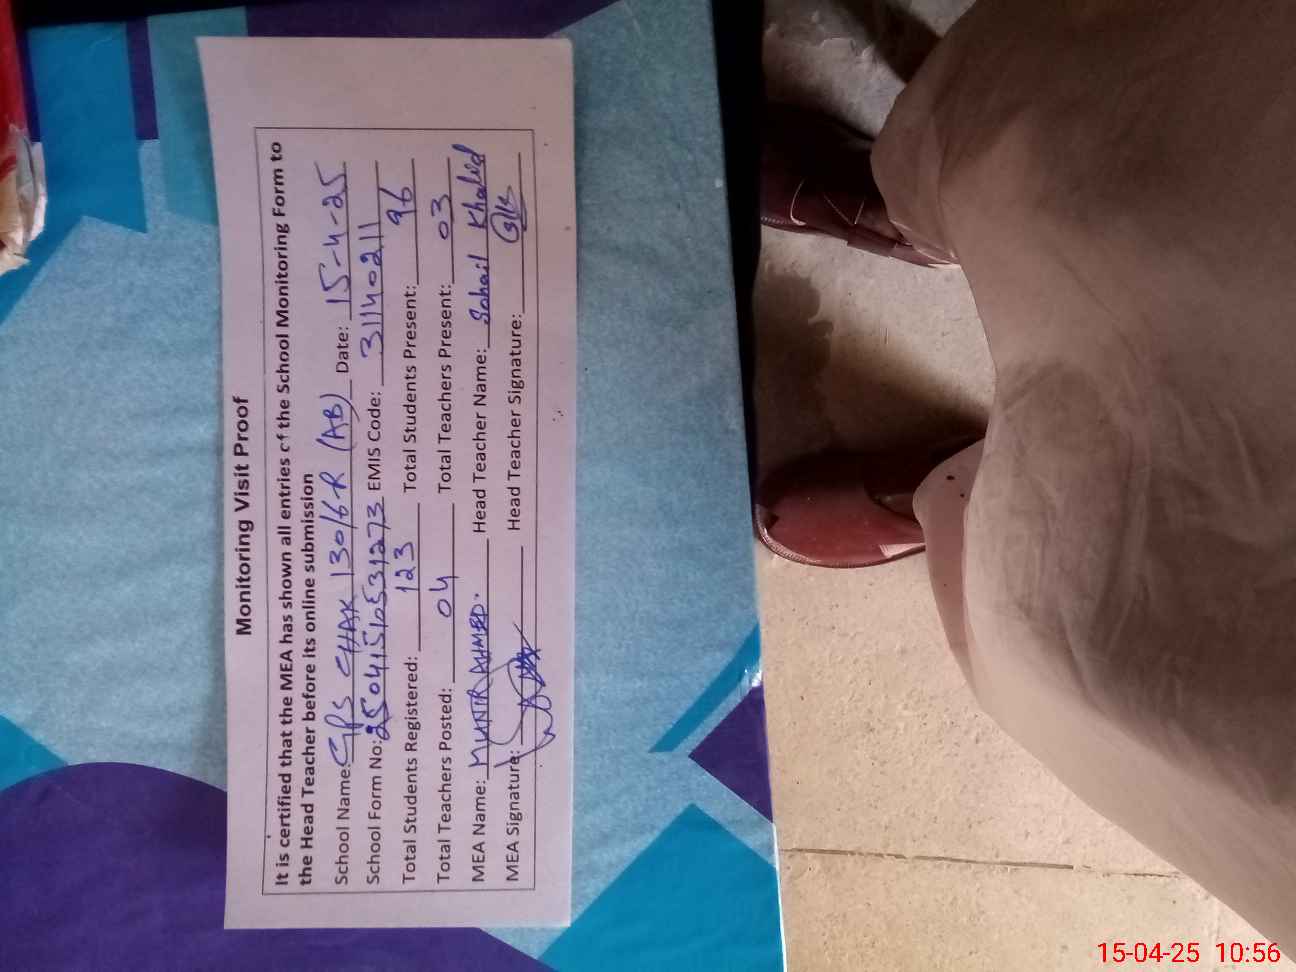 Monitoring Visit Proof
It is certified that the MEA has shown all entries of the School Monitoring Form to
the Head Teacher before its online submission
School Name: GPS CHAK 130/6-R (AB) Date: 15-4-25
School Form No: 250415105531273 EMIS Code: 31140211
Total Students Registered: 123 Total Students Present: 96
Total Teachers Posted: 04 Total Teachers Present: 03
MEA Name: MUNIR AHMED. Head Teacher Name: Sohail Khalid
MEA Signature: Head Teacher Signature:
15-04-25 10:56